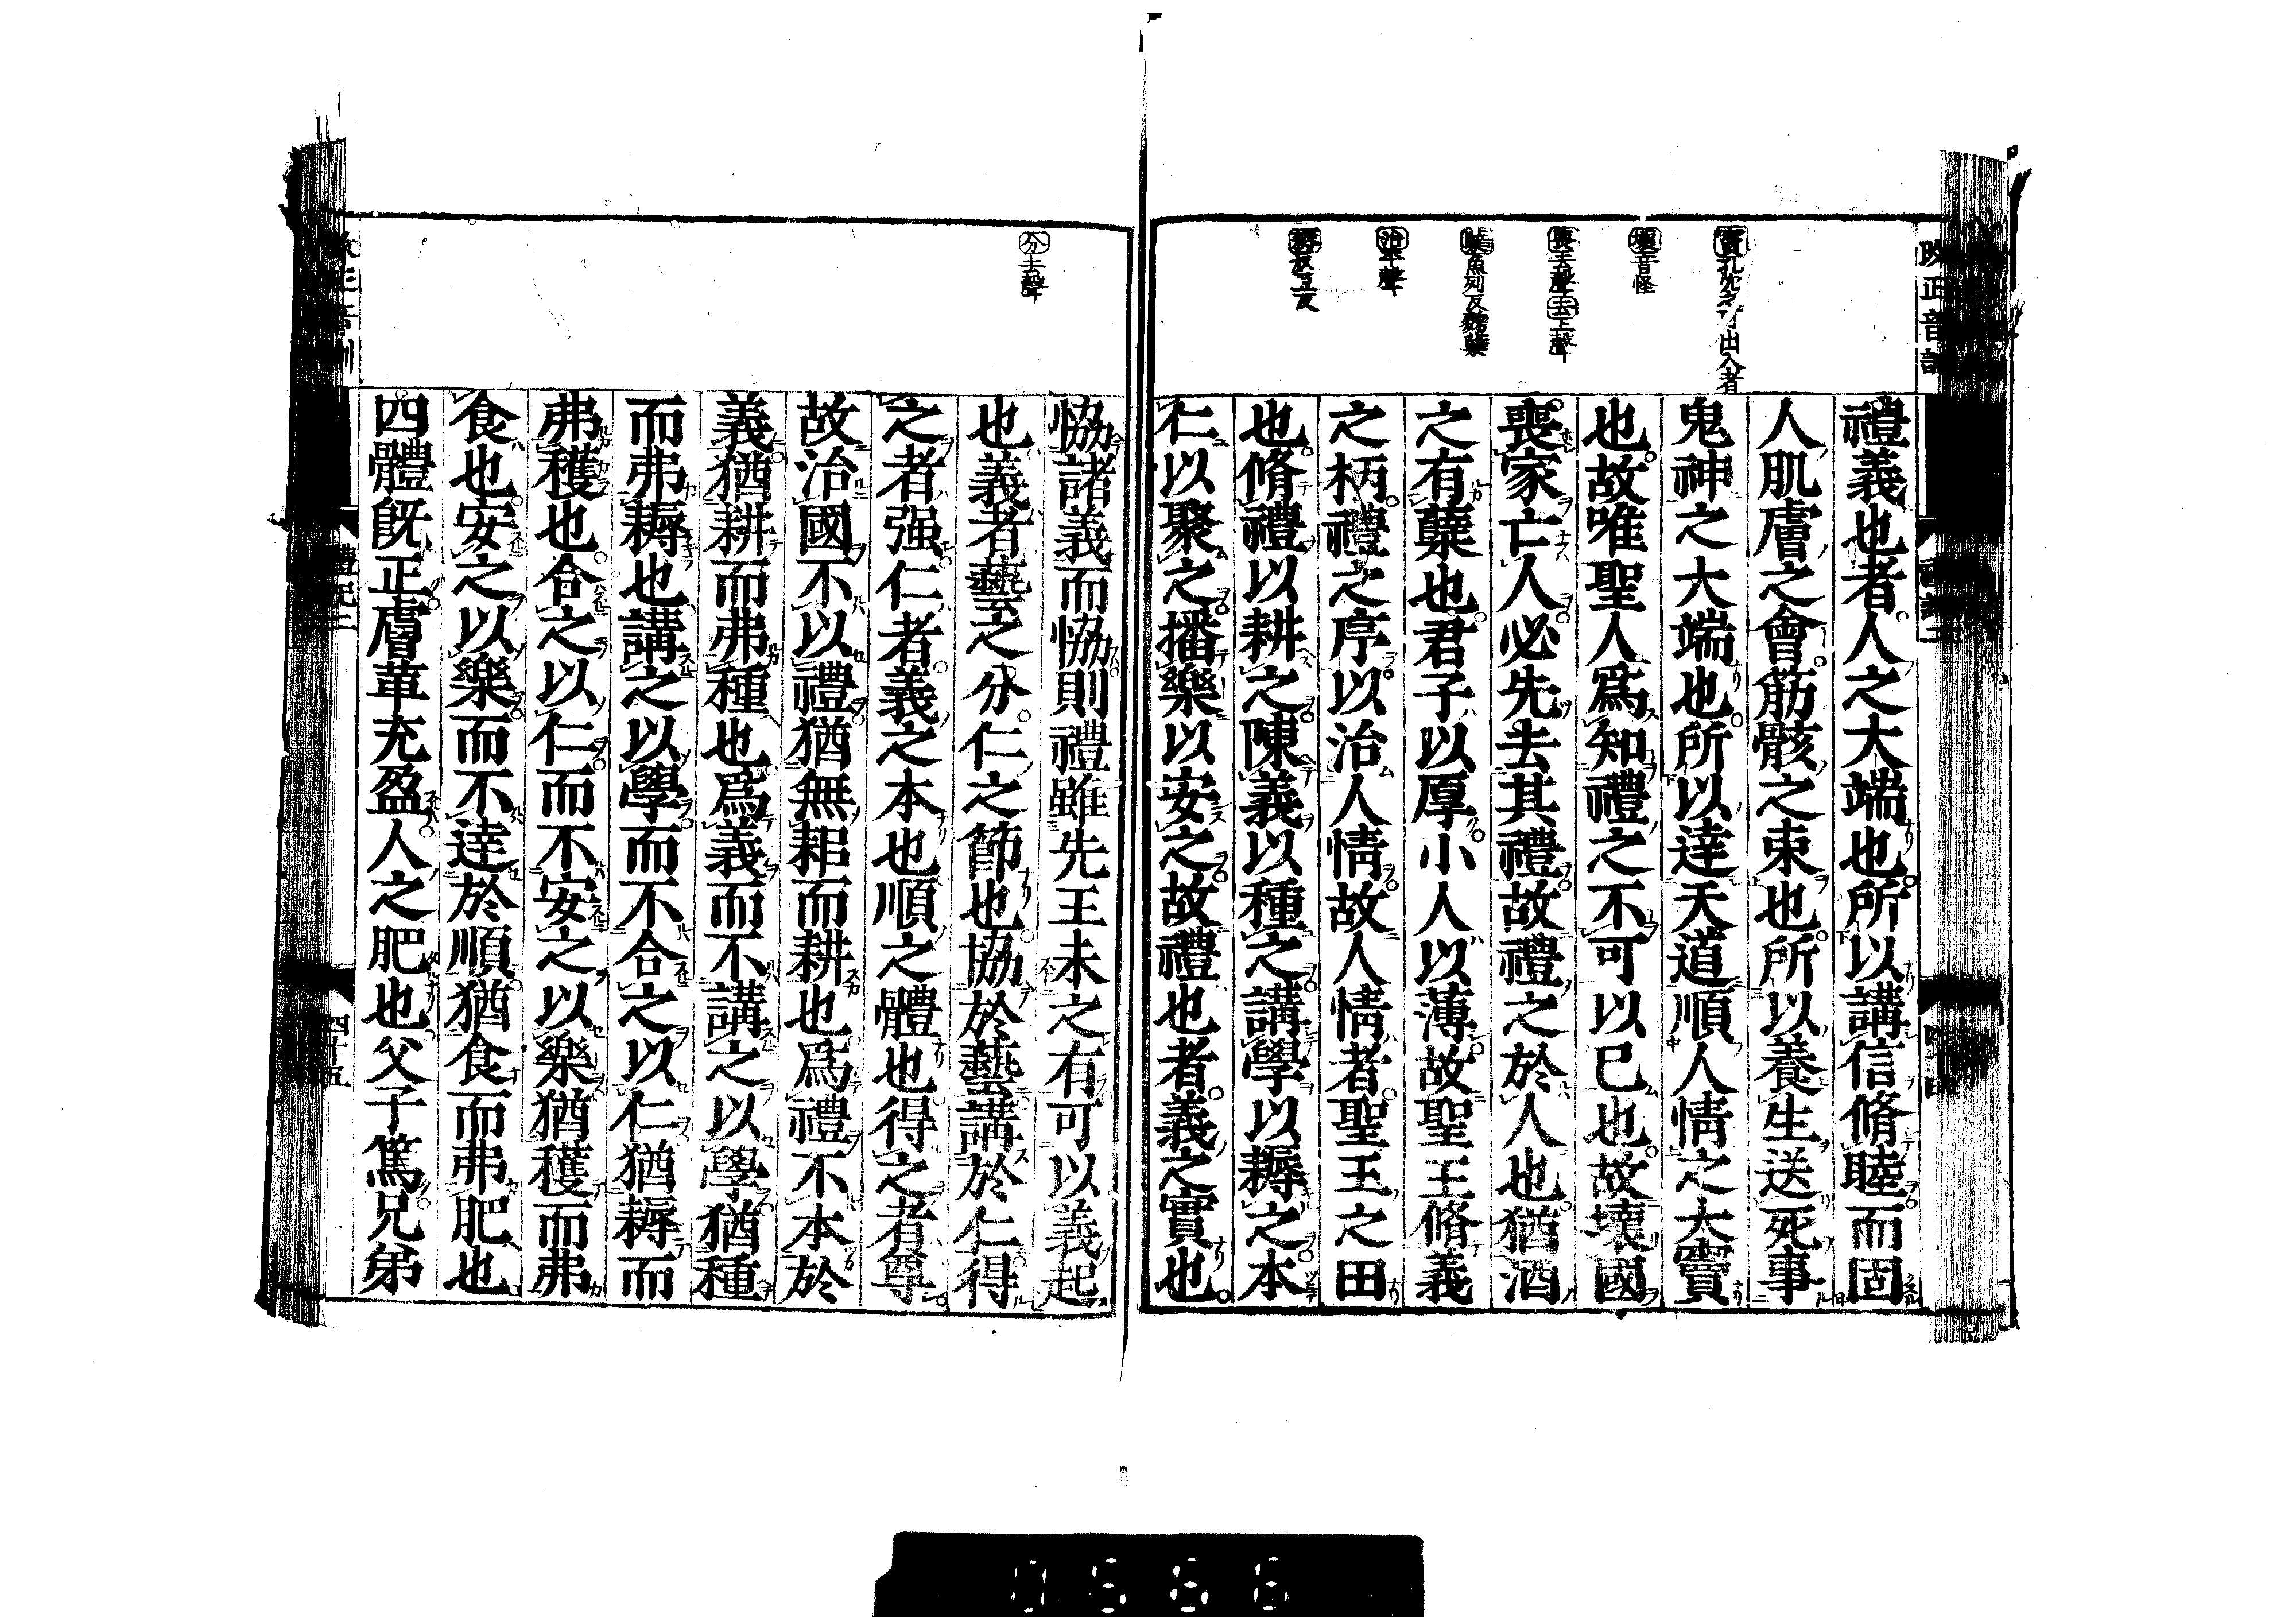 改正音訓
禮記三
竇孔穴之可出入者
壞音怪
喪去聲去上聲
糱魚列反麴糱
治平聲
禮義也者人之大端也所以講信脩睦而固
人肌膚之會筋骸之束也所以養生送死事
鬼神之大端也所以達天道順人情之大竇
也故唯聖人爲知禮之不可以已也故壞國
喪家亡人必先去其禮故禮之於人也猶酒
之有糱也君子以厚小人以薄故聖王脩義
之柄禮之序以治人情故人情者聖王之田
也脩禮以耕之陳義以種之講學以耨之本
仁以聚之播樂以安之故禮也者義之實也
分去聲
恊諸義而恊則禮雖先王未之有可以義起
也義者藝之分仁之節也協於藝講於仁得
之者强仁者義之本也順之體也得之者尊
故治國不以禮猶無耜而耕也爲禮不本於
義猶耕而弗種也爲義而不講之以學猶種
而弗耨也講之以學而不合之以仁猶耨而
弗穫也合之以仁而不安之以樂猶穫而弗
食也安之以樂而不達於順猶食而弗肥也
四體旣正膚革充盈人之肥也父子篤兄弟
禮記三
四十五